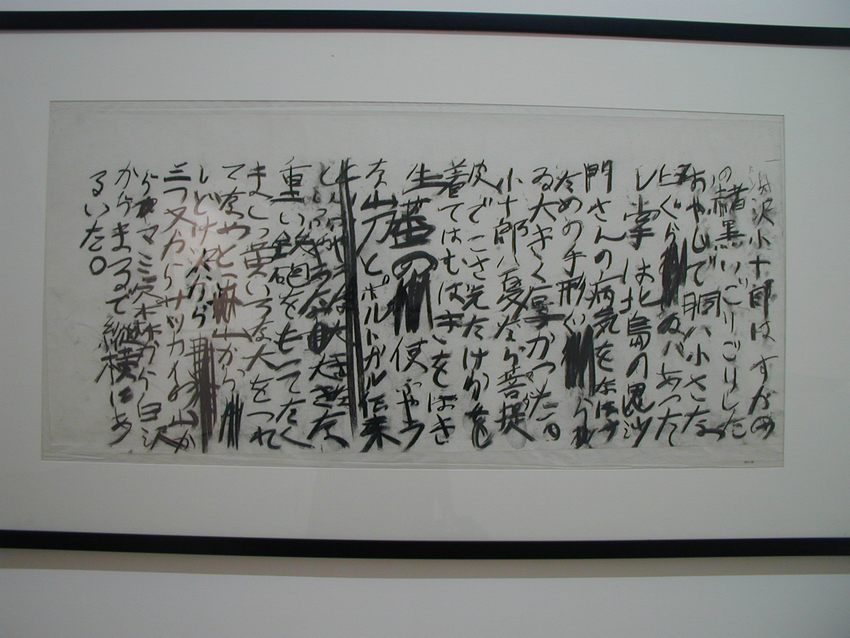 淵沢小十郎はすがめ
の赭黒いごりごりした
おやじで胴は小さな
ぐら のがあった
し掌は北島の毘沙
門さんの病気をなほす
ための手形ぐ
る大きく厚かった。
小十郎は夏なら菩提
皮でこさえたけらを
着てはむばきをはき
生蕃の使ふやう
な山刀とポルトガル伝来
といふやうな大きな
重い鉄砲をもってたく
ましい黄いろな犬をつれ
てなめとこ山から
しどけ沢から
三つ又からサッカイの山か
らマミ穴森から白沢
からまるで縦横にあ
るいた。